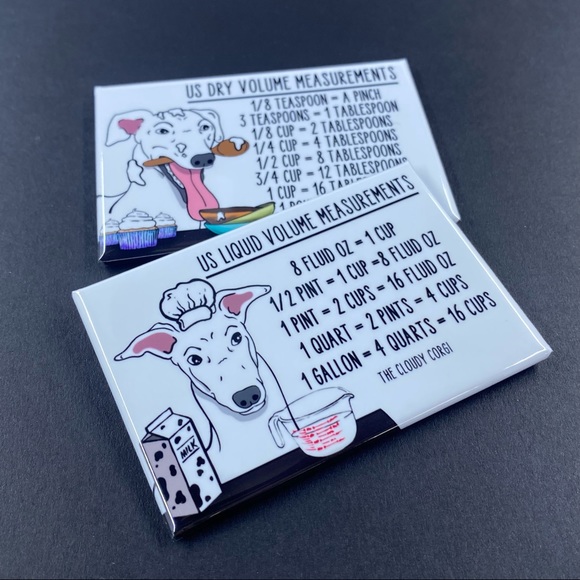 US DRY VOLUME MEASUREMENTS
1/8 TEASPOON = A PINCH
3 TEASPOONS = 1 TABLESPOON
1/8 CUP = 2 TABLESPOONS
1/4 CUP = 4 TABLESPOONS
1/2 CUP = 8 TABLESPOONS
3/4 CUP = 12 TABLESPOONS
1 CUP = 16
1
US LIQUID VOLUME MEASUREMENTS
8 FLUID OZ = 1 CUP
1/2 PINT = 1 CUP =8 FLUID OZ
1 PINT = 2 CUPS = 16 FLUID OZ
1 QUART = 2 PINTS = 4 CUPS
1 GALLON = 4 QUARTS = 16 CUPS
THE CLOUDY CORGI
MILK